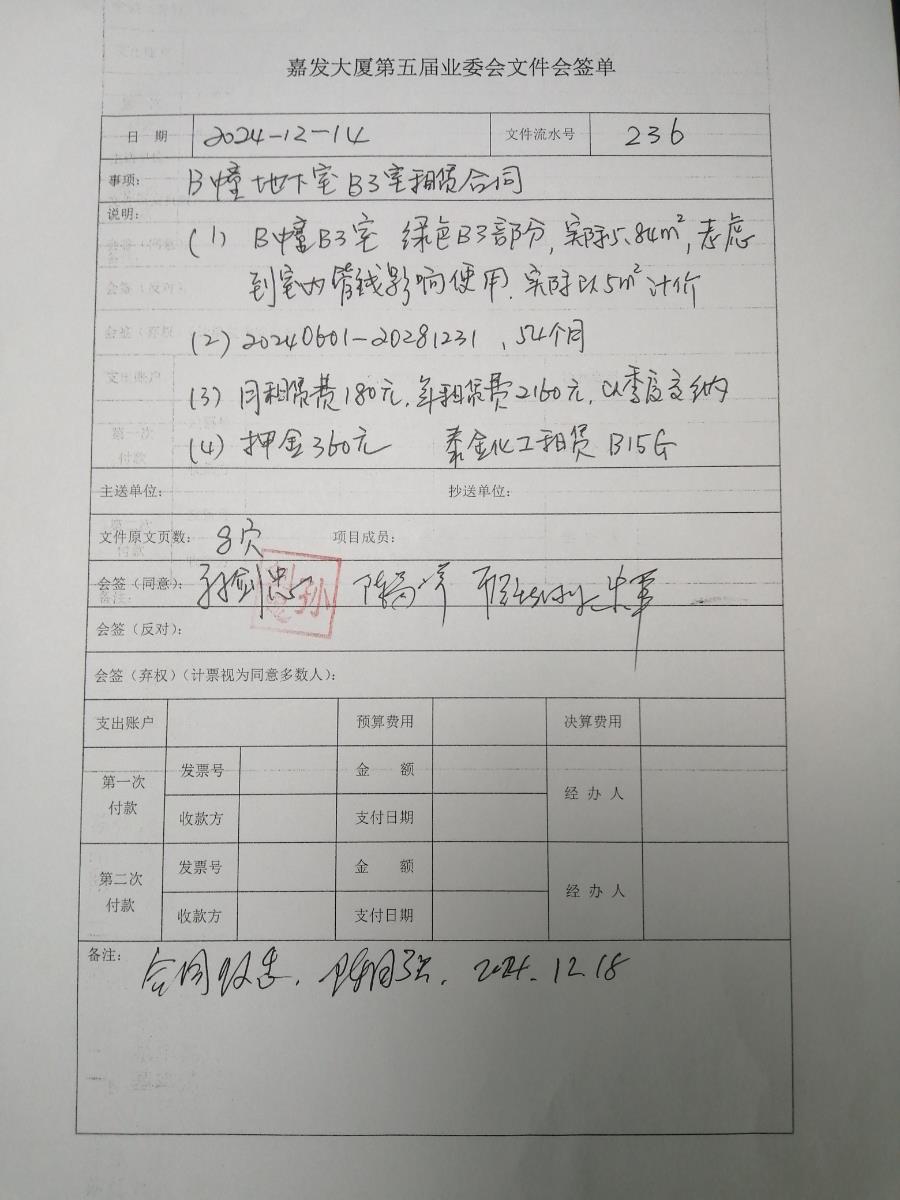 嘉发大厦第五届业委会文件会签单
日 期 2024-12-14 文件流水号 236
事项: B幢地下室B3室租赁合同
说明:
(1) B幢B3室 绿色B3部分,实际5.84m²,考虑
到室内管线影响使用.实际以5m²计价
(2) 20240601-20281231 , 54个月
(3) 月租赁费180元,年租赁费2160元,以季度交纳
(4) 押金360元 泰金化工租赁 B15G
主送单位: 抄送单位:
文件原文页数: 8页 项目成员:
会签(同意): 孙剑忠
会签(反对):
会签(弃权)(计票视为同意多数人):
支出账户 预算费用 决算费用
第一次付款 发票号 金 额 经 办 人
收款方 支付日期
第二次付款 发票号 金 额 经 办 人
收款方 支付日期
备注: 合同 2024.12.18